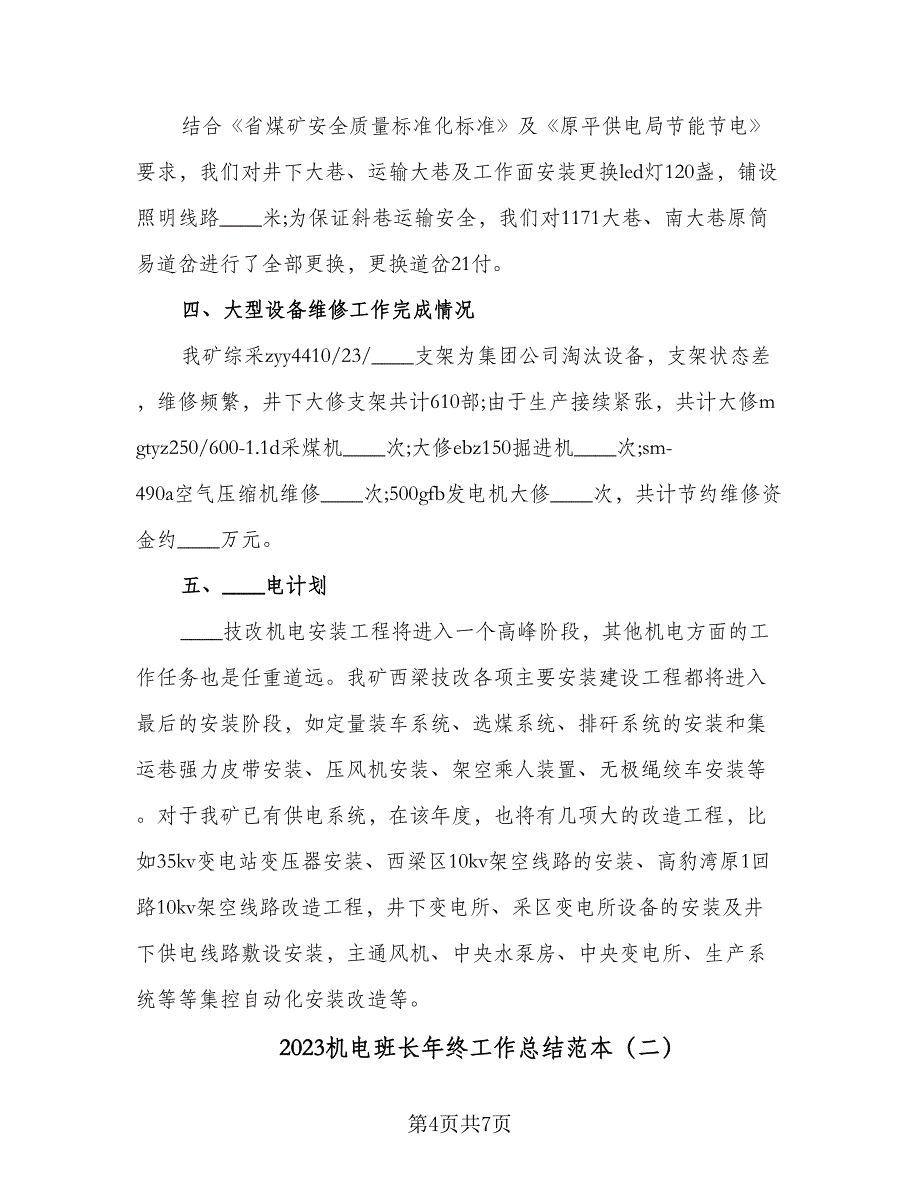 结合《省煤矿安全质量标准化标准》及《原平供电局节能节电》
要求，我们对井下大巷、运输大巷及工作面安装更换led灯120盏，铺设
照明线路____米;为保证斜巷运输安全，我们对1171大巷、南大巷原简
易道岔进行了全部更换，更换道岔21付。
四、大型设备维修工作完成情况
我矿综采zyy4410/23/____支架为集团公司淘汰设备，支架状态差
，维修频繁，井下大修支架共计610部;由于生产接续紧张，共计大修m
gtyz250/600-1.1d采煤机____次;大修ebz150掘进机____次;sm-
490a空气压缩机维修____次;500gfb发电机大修____次，共计节约维修资
金约____万元。
五、____电计划
____技改机电安装工程将进入一个高峰阶段，其他机电方面的工
作任务也是任重道远。我矿西梁技改各项主要安装建设工程都将进入
最后的安装阶段，如定量装车系统、选煤系统、排矸系统的安装和集
运巷强力皮带安装、压风机安装、架空乘人装置、无极绳绞车安装等
。对于我矿已有供电系统，在该年度，也将有几项大的改造工程，比
如35kv变电站变压器安装、西梁区10kv架空线路的安装、高豹湾原1回
路10kv架空线路改造工程，井下变电所、采区变电所设备的安装及井
下供电线路敷设安装，主通风机、中央水泵房、中央变电所、生产系
统等等集控自动化安装改造等。
2023机电班长年终工作总结范本（二）
第4页共7页